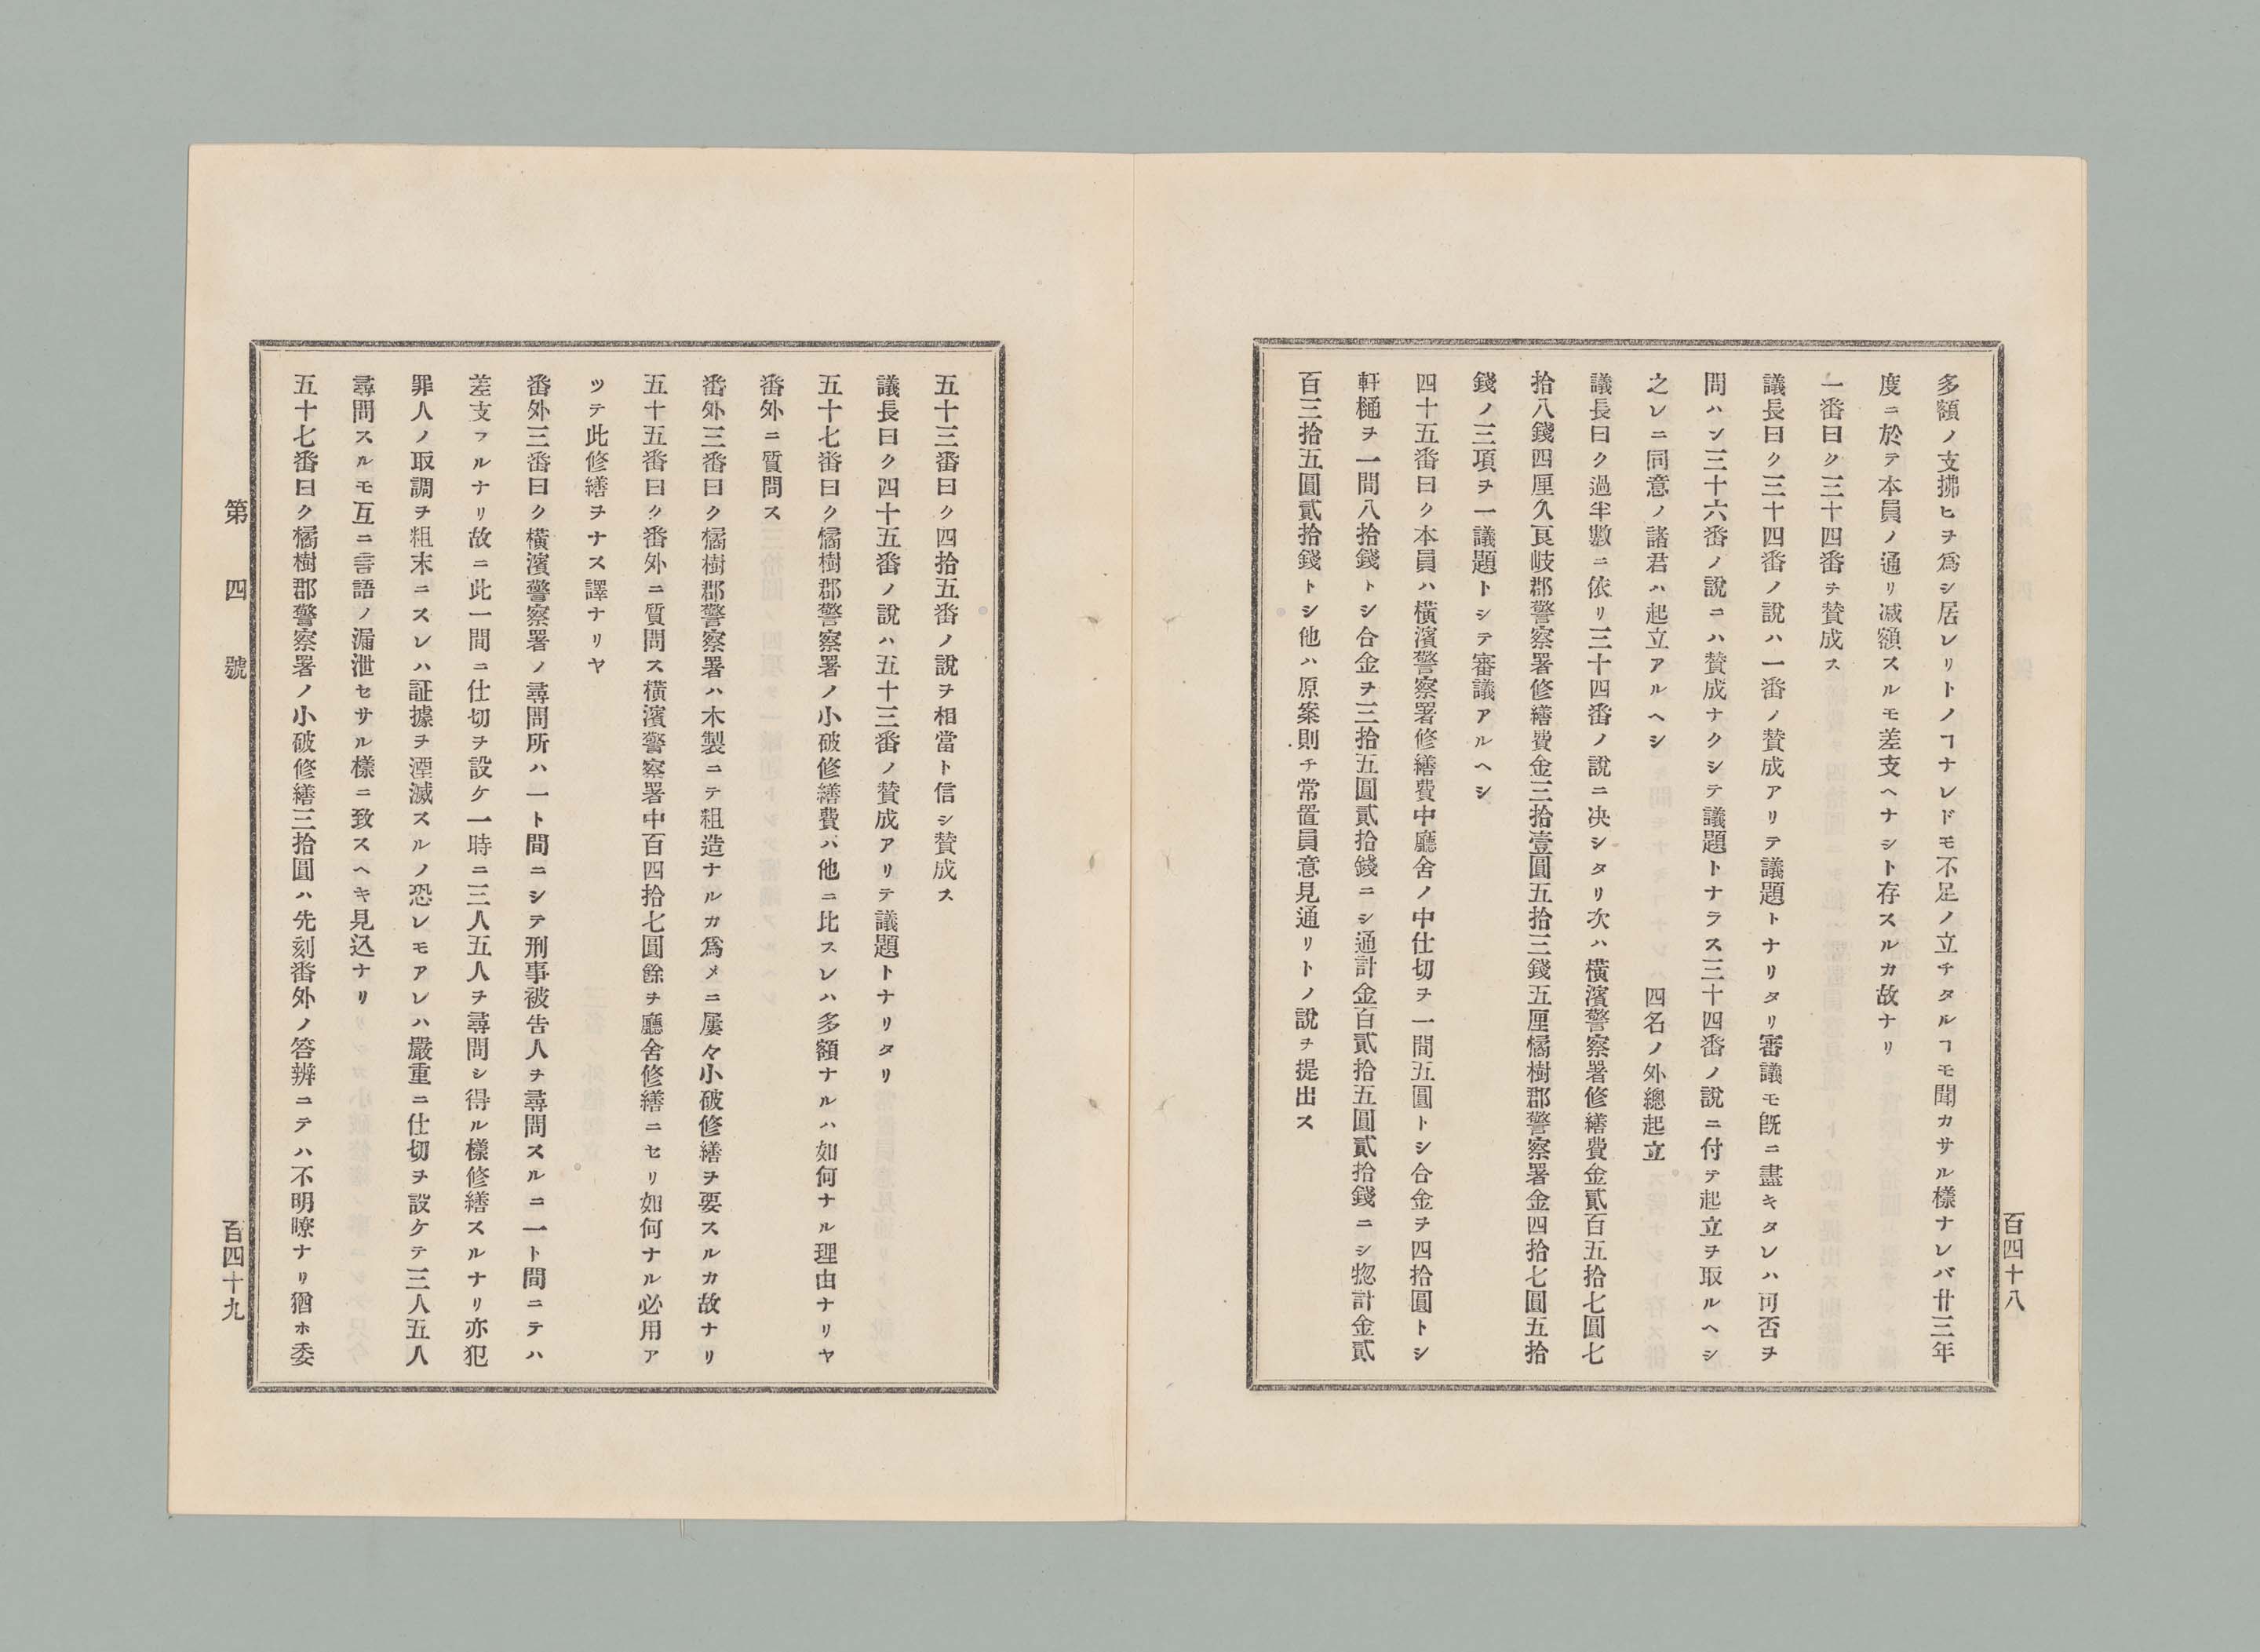 百四十八
多額ノ支拂ヒヲ爲シ居レリトノヿナレドモ不足ノ立チタルヿモ聞カサル樣ナレバ廿三年
度ニ於テ本員ノ通リ减額スルモ差支ヘナシト存スルカ故ナリ
一番曰ク三十四番ヲ賛成ス
議長曰ク三十四番ノ說ハ一番ノ賛成アリテ議題トナリタリ審議モ旣ニ盡キタレハ可否ヲ
問ハン三十六番ノ說ニハ賛成ナクシテ議題トナラス三十四番ノ說ニ付テ起立ヲ取ルヘシ
之レニ同意ノ諸君ハ起立アルヘシ　四名ノ外總起立
議長曰ク過半數ニ依リ三十四番ノ說ニ决シタリ次ハ橫濱警察署修繕費金貳百五拾七圓七
拾八錢四厘久良岐郡警察署修繕費金三拾壹圓五拾三錢五厘橘樹郡警察署金四拾七圓五拾
錢ノ三項ヲ一議題トシテ審議アルヘシ
四十五番曰ク本員ハ橫濱警察署修繕費中廳舍ノ中仕切ヲ一間五圓トシ合金ヲ四拾圓トシ
軒樋ヲ一間八拾錢トシ合金ヲ三拾五圓貳拾錢ニシ通計金百貳拾五圓貳拾錢ニシ惣計金貳
百三拾五圓貳拾錢トシ他ハ原案則チ常置員意見通リトノ說ヲ提出ス
五十三番曰ク四拾五番ノ說ヲ相當ト信シ賛成ス
議長曰ク四十五番ノ說ハ五十三番ノ賛成アリテ議題トナリタリ
五十七番曰ク橘樹郡警察署ノ小破修繕費ハ他ニ比スレハ多額ナルハ如何ナル理由ナリヤ
番外ニ質問ス
番外三番曰ク橘樹郡警察署ハ木製ニテ粗造ナルカ爲メニ屢々小破修繕ヲ要スルカ故ナリ
五十五番曰ク番外ニ質問ス橫濱警察署中百四拾七圓餘ヲ廳舍修繕ニセリ如何ナル必用ア
ツテ此修繕ヲナス譯ナリヤ
番外三番曰ク橫濱警察署ノ尋問所ハ一ト間ニシテ刑事被告人ヲ尋問スルニ一ト間ニテハ
差支フルナリ故ニ此一間ニ仕切ヲ設ケ一時ニ三人五人ヲ尋問シ得ル樣修繕スルナリ亦犯
罪人ノ取調ヲ粗末ニスレハ証據ヲ湮滅スルノ恐レモアレハ嚴重ニ仕切ヲ設ケテ三人五人
尋問スルモ互ニ言語ノ漏泄セサル樣ニ致スヘキ見込ナリ
五十七番曰ク橘樹郡警察署ノ小破修繕三拾圓ハ先刻番外ノ答辨ニテハ不明瞭ナリ猶ホ委
第四號
百四十九